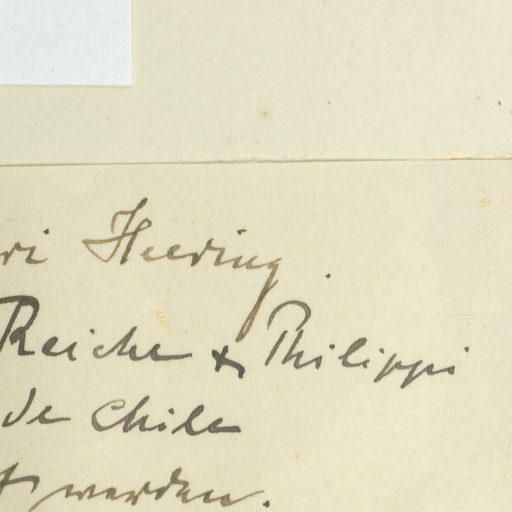 ri Heering.
Reiche & Philippi
de Chile
t werden.